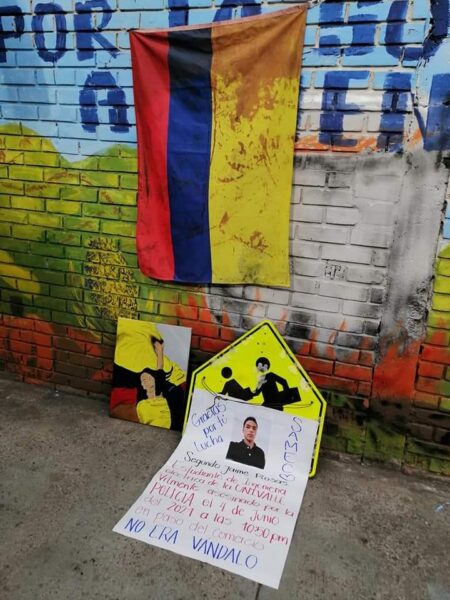 POR
Gracias
por tu
Lucha
SAMECO
Segundo Jaime Rosas
Estudiante de Ingenieria
electrica de la UNIVALLE
Vilmente asesinado por la
POLICIA el 4 de Junio
del 2021 a las 10:50 pm
en paso del Comercio
NO ERA VANDALO